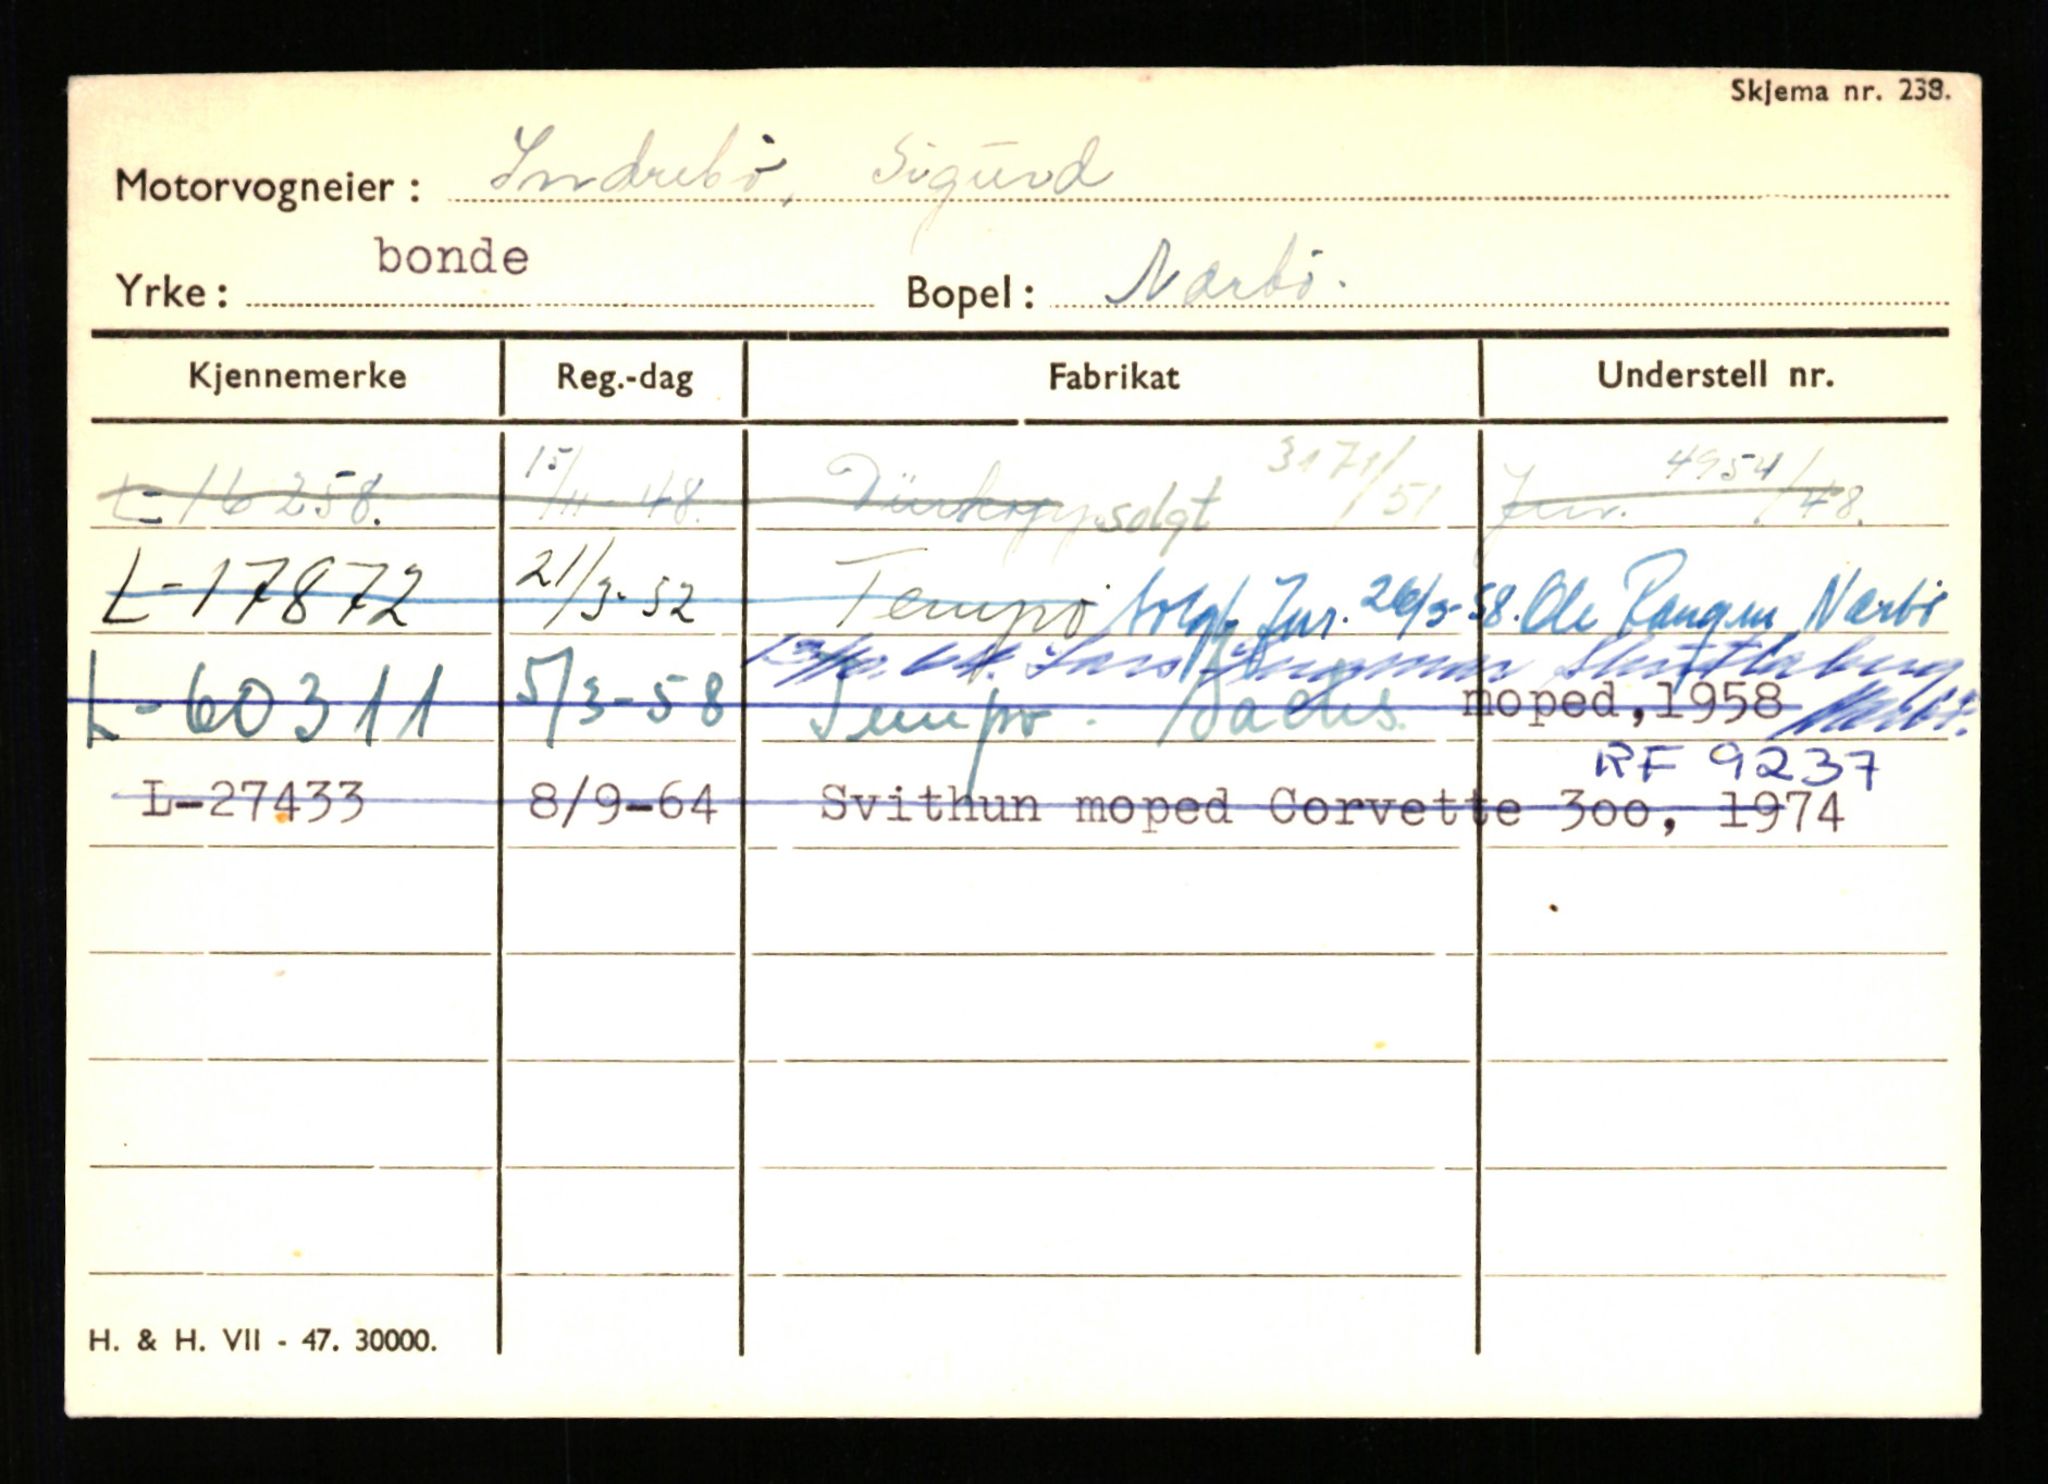 Skjema nr. 238.
Motorvogneier: Indrebö, Sigurd
Yrke: bonde Bopel: Nærbö.
Kjennemerke Reg.-dag Fabrikat Understell nr.
L-16258. 15/11-48. Dürkopp. solgt 3171/51 Jnr. 4954/48.
L-17872 21/3-52 Tempo solgt Jnr. 26/3-58. Ole Nærbö
Lars Ingemar
L-60311 5/3-58 Tempo. Sachs. moped, 1958 Nærbö.
RF 9237
L-27433 8/9-64 Svithun moped Corvette 3oo, 1974
H. & H. VII - 47. 30000.